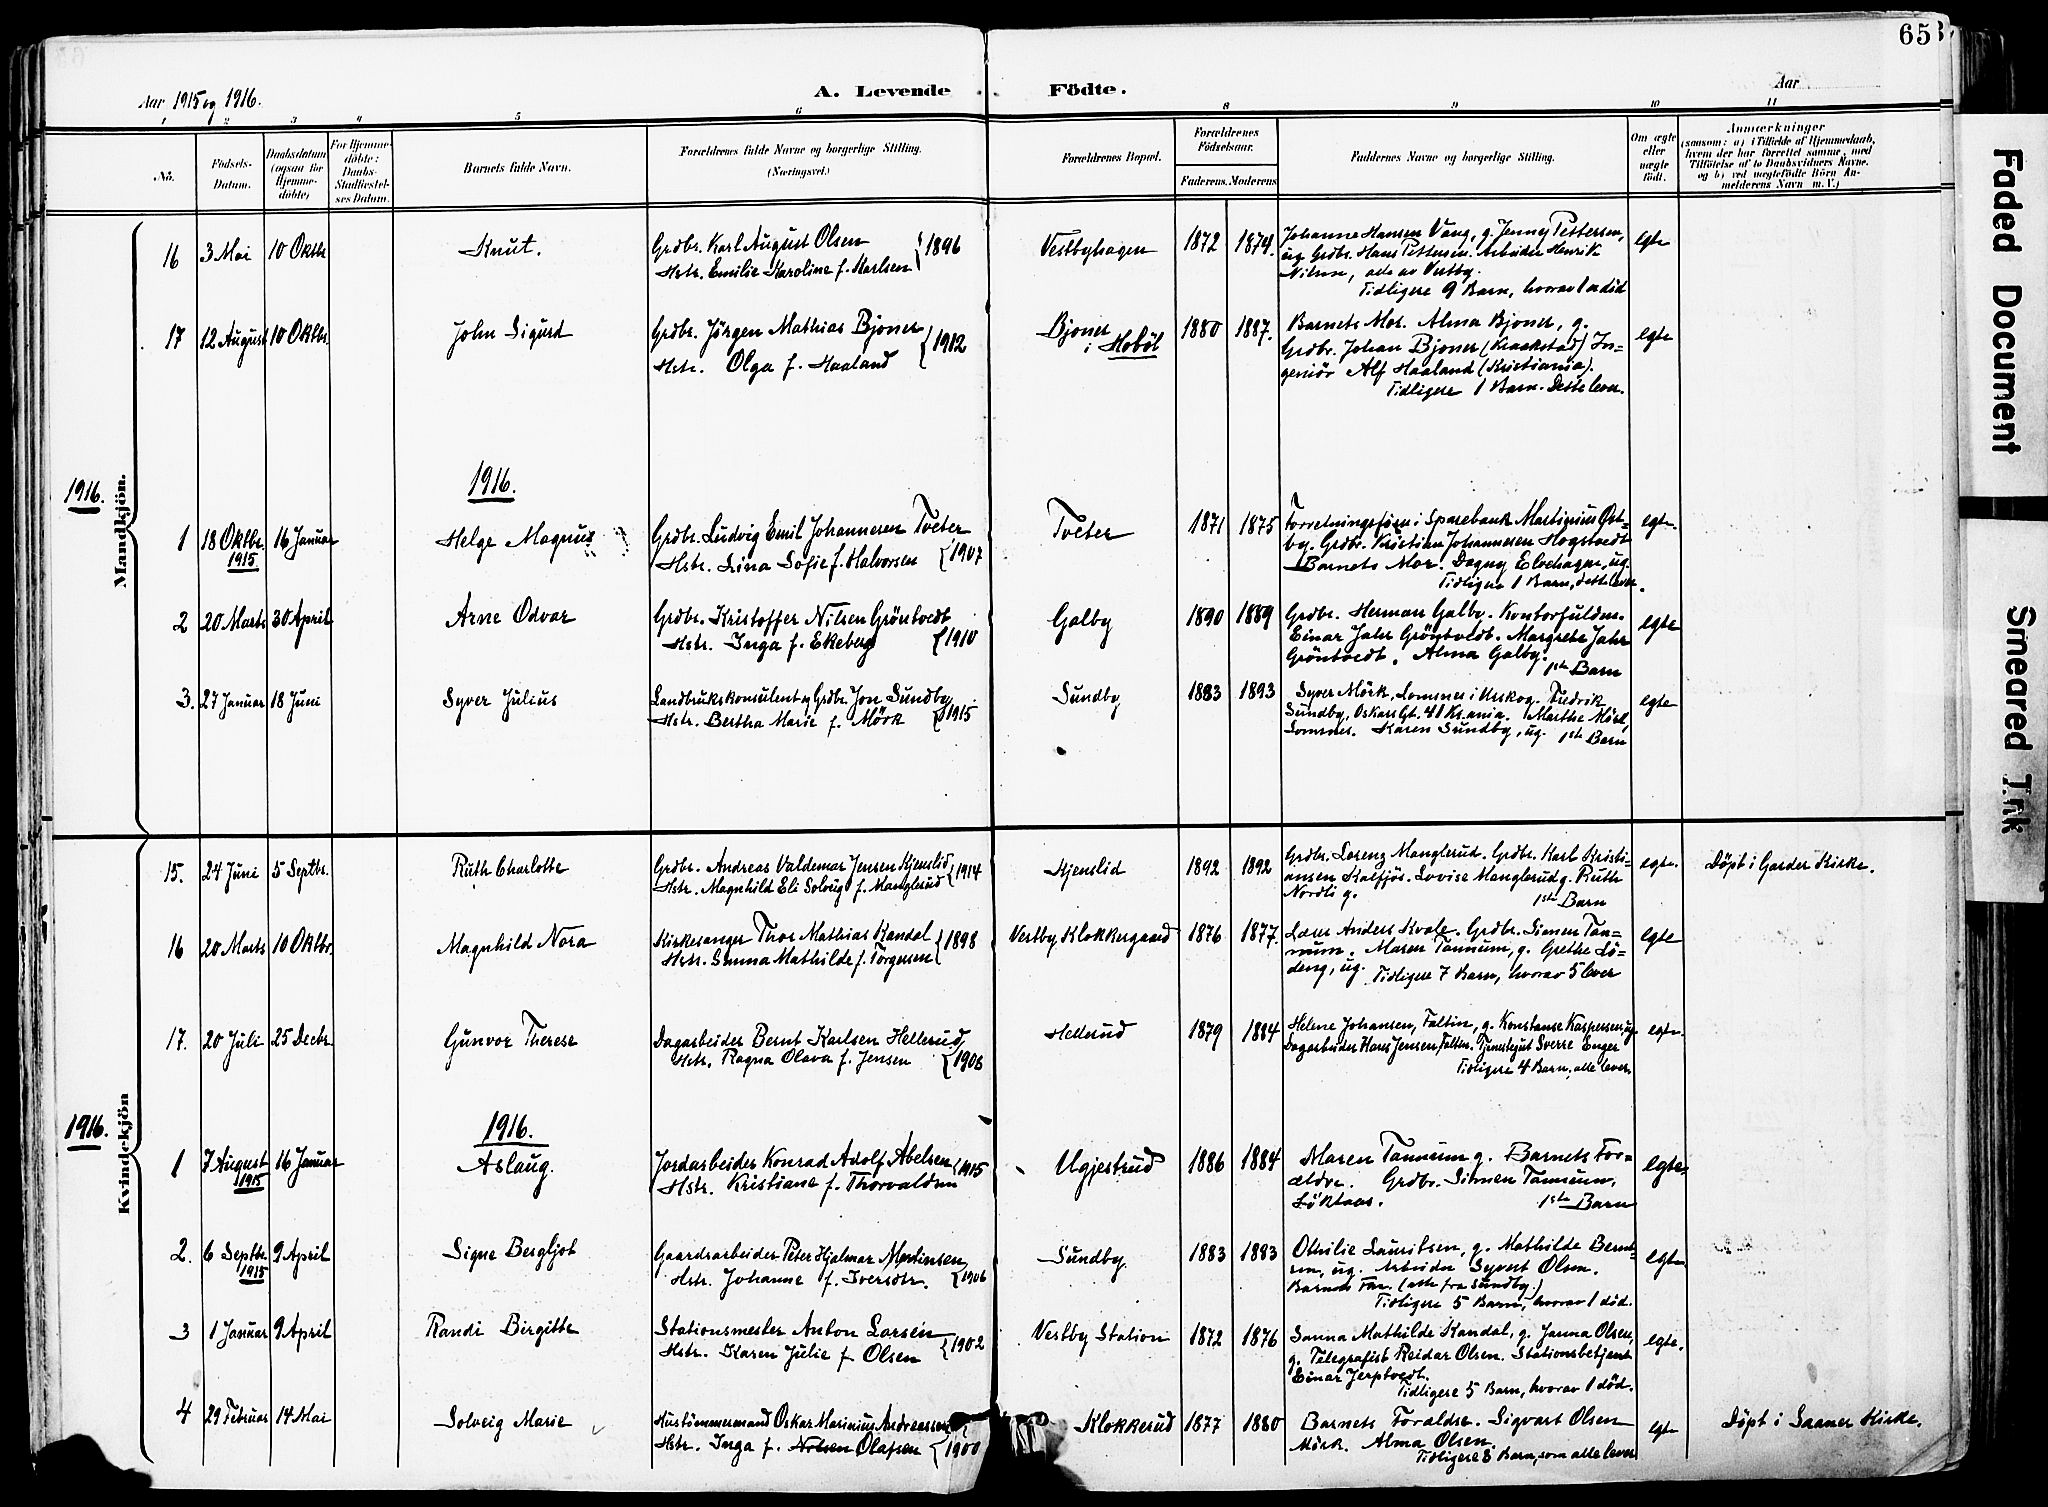 65
Aar 1915 og 1916.
A. Levende Födte.
Aar
1 2 3 4 5 6 8 9 10 11
No.
Födsels-Datum.
Daabsdatum (ogsaa for Hjemme-döbte)
For Hjemme-döbte: Daabs-Stadfæstel-ses Datum.
Barnets fulde Navn.
Forældrenes fulde Navne og borgerlige Stilling.
(Næringsvei.)
Forældrenes Bopæl.
Forældrenes Födselsaar.
Faderens. Moderens
Faddernes Navne og borgerlige Stilling.
Om ægte eller uægte födt.
Anmærkninger
(saasom: a) i Tilfælde af Hjemmedaab,
hvem der har forrettet samme, med
Tilföielse af to Daabsvidners Navne.
og b) ved uægtefödte Börn An-
melderens Navn m. V.)
Mandkjön.
16 3 Mai 10 Oktbr Knut. Grdbr. Karl August Olsen {1896 Vestbyhagen 1872 1874. Johanne Hansen Vang, g. Jenny Pettersen, egte
Hstr. Emilie Karoline f. Karlsen ug Grdbr. Hans Pettersen. Arbeider Henrik
Nilsen, alle av Vestby.
Tidligere 9 Barn, hvorav 1 er död
17 12 August 10 Oktbr. John Sigurd Grdbr. Jörgen Mathias Bjoner {1912 Bjoner i Hobøl 1880 1887. Barnets Mor. Alma Bjoner, g. egte
Hstr. Olga f. Haaland Grdbr. Johan Bjoner (Kraakstad) In-
geniör Alf Haaland (Kristiania).
Tidligere 1 Barn. Dette lever.
1916.
1916.
1 18 Oktbr. 1915 16 Januar Helge Magnus Grdbr. Ludvig Emil Johannesen Tveter Tveter 1871 1875 Forretningsförer i Sparebank Martinius Øst- egte.
Hstr. Lina Sofie f. Halvorsen {1907 by. Grdbr. Kristian Johannesen Hogstvedt
Barnets Mor. Dagny Elvehagen, ug.
Tidligere 1 Barn, dette lever.
2 20 Marts 30 April Arne Odvar Grdbr. Kristoffer Nilsen Gröntvedt Galby 1890 1889 Grdbr. Herman Galby. Kontorfuldm. egte
Hstr. Inga f. Ekeberg {1910 Einar Jahr Gröntvedt. Margrete Jahr
Gröntvedt. Alma Galby. 1ste Barn
3. 27 Januar 18 Juni Syver Julius Landbrukskonsulent og Grdbr. Jon Sundby Sundby 1883 1893 Syver Mörk, Lomsnes i Urskog. Fredrik egte
Hstr. Bertha Marie f. Mörk {1915 Sundby, Oskars Gt. 41 Kr.ania. Marthe Mörk,
Lomsnes. Karen Sundby, ug. 1ste Barn
Kvindekjön
15. 24 Juni 5 Septbr. Ruth Charlotte Grdbr. Andreas Valdemar Jensen Kjenslid {1914 Kjenslid 1892 1892 Grdbr. Lorenz Manglerud. Grdbr. Karl Kristi- egte. Döpt i Garder Kirke.
Hstr. Magnhild Eli Solveig f. Manglerud ansen Kalfjös. Lovise Manglerud g. Ruth
Nordli g. 1ste Barn
16 20 Marts 10 Oktbr. Magnhild Nora Kirkesanger Thor Mathias Kandal {1898 Vestby Klokkergaard 1876 1877. Lærer Anders Kvale. Grdbr. Simen Tan- egte
Hstr. Sanna Mathilde f. Torgersen num. Maren Tannum, g. Grethe Lö-
deng, ug. Tidligere 7 Barn, hvorav 5 lever
17. 20 Juli 25 Decbr. Gunvor Therese Dagarbeider Bernt Karlsen Hellerud Hellerud 1879 1884 Helene Johansen, Faltin, g. Konstanse Kaspersen ug. egte.
Hstr. Ragna Olava f. Jensen {1906 Dagarbeider Hans Jensen, Falten. Tjenestegut Sverre Enger
Tidligere 4 Barn, alle lever.
1916. 1916.
1 7 August 1915 16 Januar Aslaug. Jordarbeider Konrad Adolf Abelsen {1915 Ugjestrud 1886 1884 Maren Tannum g. Barnets For- egte.
Hstr. Kristiane f. Thorvaldsen ældre. Grdbr. Simen Tannum,
Löktaas. 1ste Barn
2. 6 Septbr. 1915 9 April Signe Bergljot Gaardsarbeider Peter Hjalmar Martinsen Sundby. 1883 1883 Othilie Lauritsen, g. Mathilde Bernt- egte.
Hstr. Johanne f. Iversdtr. {1906 sen, ug. Arbeider Syvert Olsen.
Barnets Far. (alle fra Sundby.)
Tidligere 5 Barn, hvorav 1 död.
3 1 Januar 9 April Randi Birgitte Stationsmester Anton Larsen Vestby Station 1872 1876 Sanna Mathilde Kandal, g. Janna Olsen, egte.
Hstr. Karen Julie f. Olsen {1902 g. Telegrafist Reidar Olsen. Stationsbetjent
Einar Jerptvedt.
Tidligere 5 Barn, hvorav 1 död.
4 29 Februar 14 Mai Solveig Marie Hustömmermand Oskar Marinius Andreassen Klokkerud 1877 1880 Barnets Foreldre. Sigvart Olsen egte Döpt i Saaner Kirke.
Hstr. Inga f. Nolsen Olafsen {1900 Mörk. Alma Olsen.
Tidligere 8 Barn, som alle lever
Faded Document
Smeared Ink